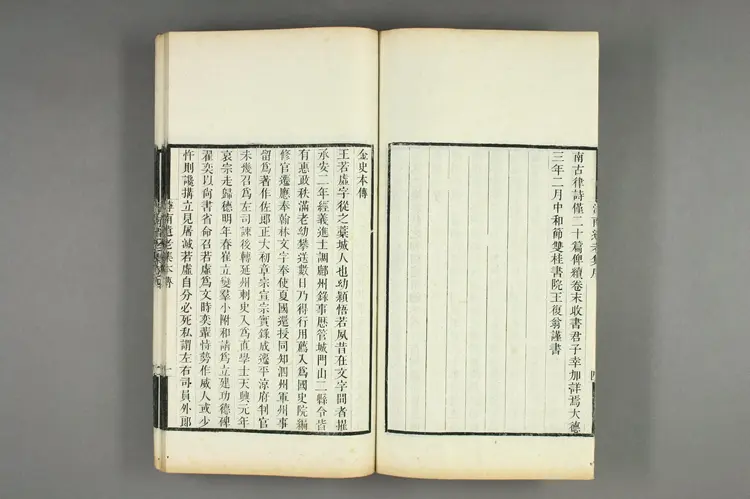 南古律詩僅二十篇俾續卷末收書君子幸加詳焉大德
三年二月中和節雙桂書院王復翁謹書
金史本傳
王若虛字從之藁城人也幼穎悟若夙昔在文字間者擢
承安二年經義進士調鄜州錄事歷管城門山二縣令皆
有惠政秩滿老幼攀送數日乃得行用薦入為國史院編
修官遷應奉翰林文字奉使夏國還授同知泗州軍州事
留為著作佐郎正大初章宗宣宗實錄成遷平涼府判官
未幾召為左司諫後轉延州刺史入為直學士天興元年
哀宗走歸德明年春崔立變羣小附和請為立建功德碑
翟奕以尚書省命召若虛為文時奕輩恃勢作威人或少
忤則讒搆立見屠滅若虛自分必死私謂左右司員外郎
滹南遺老集本傳
一